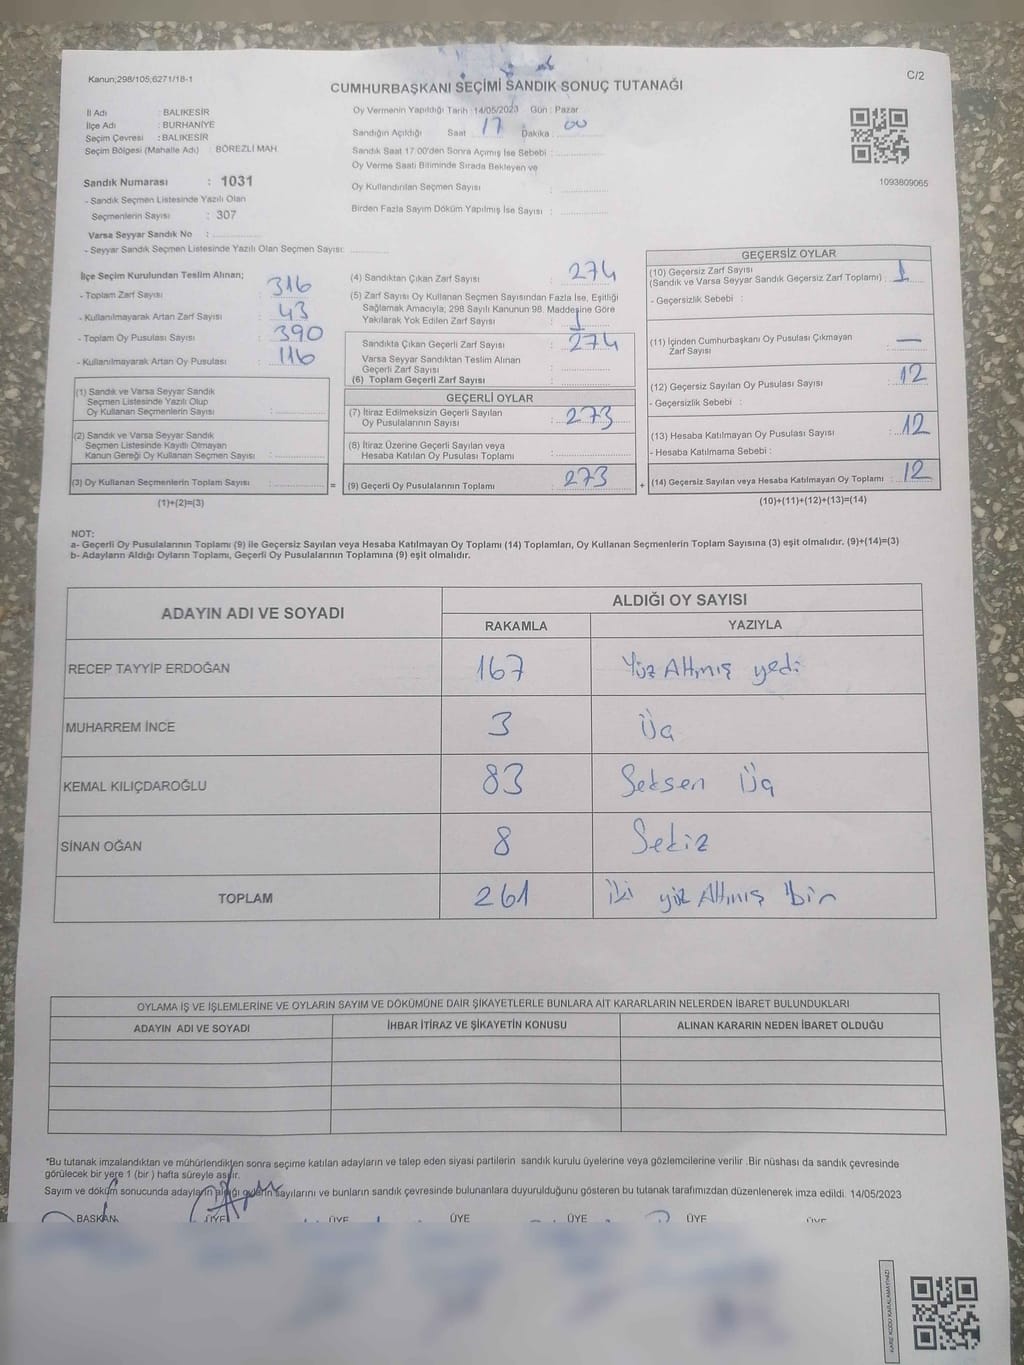 Kanun;298/105;6271/18-1
C/2
CUMHURBAŞKANI SEÇİMİ SANDIK SONUÇ TUTANAĞI
İl Adı : BALIKESİR
İlçe Adı : BURHANİYE
Seçim Çevresi : BALIKESİR
Seçim Bölgesi (Mahalle Adı) : BÖREZLİ MAH
Sandık Numarası : 1031
- Sandık Seçmen Listesinde Yazılı Olan
Seçmenlerin Sayısı : 307
Varsa Seyyar Sandık No :
- Seyyar Sandık Seçmen Listesinde Yazılı Olan Seçmen Sayısı:
Oy Vermenin Yapıldığı Tarih :14/05/2023 Gün : Pazar
Sandığın Açıldığı Saat 17 Dakika : 00
Sandık Saat 17:00'den Sonra Açımış İse Sebebi :
Oy Verme Saati Bitiminde Sırada Bekleyen ve
Oy Kullandırılan Seçmen Sayısı :
Birden Fazla Sayım Döküm Yapılmış İse Sayısı :
1093809065
İlçe Seçim Kurulundan Teslim Alınan;
- Toplam Zarf Sayısı : 316
- Kullanılmayarak Artan Zarf Sayısı : 43
- Toplam Oy Pusulası Sayısı : 390
- Kullanılmayarak Artan Oy Pusulası : 116
(1) Sandık ve Varsa Seyyar Sandık
Seçmen Listesinde Yazılı Olup
Oy Kullanan Seçmenlerin Sayısı :
(2) Sandık ve Varsa Seyyar Sandık
Seçmen Listesinde Kayıtlı Olmayan
Kanun Gereği Oy Kullanan Seçmen Sayısı :
(3) Oy Kullanan Seçmenlerin Toplam Sayısı :
(1)+(2)=(3)
=
(4) Sandıktan Çıkan Zarf Sayısı : 274
(5) Zarf Sayısı Oy Kullanan Seçmen Sayısından Fazla İse, Eşitliği
Sağlamak Amacıyla; 298 Sayılı Kanunun 98. Maddesine Göre
Yakılarak Yok Edilen Zarf Sayısı : 1
Sandıkta Çıkan Geçerli Zarf Sayısı : 274
Varsa Seyyar Sandıktan Teslim Alınan
Geçerli Zarf Sayısı :
(6) Toplam Geçerli Zarf Sayısı :
GEÇERLİ OYLAR
(7) İtiraz Edilmeksizin Geçerli Sayılan
Oy Pusulalarının Sayısı : 273
(8) İtiraz Üzerine Geçerli Sayılan veya
Hesaba Katılan Oy Pusulası Toplamı :
(9) Geçerli Oy Pusulalarının Toplamı : 273
+
GEÇERSİZ OYLAR
(10) Geçersiz Zarf Sayısı
(Sandık ve Varsa Seyyar Sandık Geçersiz Zarf Toplamı) : 1
- Geçersizlik Sebebi :
(11) İçinden Cumhurbaşkanı Oy Pusulası Çıkmayan
Zarf Sayısı : —
(12) Geçersiz Sayılan Oy Pusulası Sayısı : 12
- Geçersizlik Sebebi :
(13) Hesaba Katılmayan Oy Pusulası Sayısı : 12
- Hesaba Katılmama Sebebi :
(14) Geçersiz Sayılan veya Hesaba Katılmayan Oy Toplamı : 12
(10)+(11)+(12)+(13)=(14)
NOT:
a- Geçerli Oy Pusulalarının Toplamı (9) ile Geçersiz Sayılan veya Hesaba Katılmayan Oy Toplamı (14) Toplamları, Oy Kullanan Seçmenlerin Toplam Sayısına (3) eşit olmalıdır. (9)+(14)=(3)
b- Adayların Aldığı Oyların Toplamı, Geçerli Oy Pusulalarının Toplamına (9) eşit olmalıdır.
ADAYIN ADI VE SOYADI
ALDIĞI OY SAYISI
RAKAMLA YAZIYLA
RECEP TAYYİP ERDOĞAN 167 Yüz Altmış yedi
MUHARREM İNCE 3 Üç
KEMAL KILIÇDAROĞLU 83 Seksen Üç
SİNAN OĞAN 8 Sekiz
TOPLAM 261 iki yüz Altmış bir
OYLAMA İŞ VE İŞLEMLERİNE VE OYLARIN SAYIM VE DÖKÜMÜNE DAİR ŞİKAYETLERLE BUNLARA AİT KARARLARIN NELERDEN İBARET BULUNDUKLARI
ADAYIN ADI VE SOYADI İHBAR İTİRAZ VE ŞİKAYETİN KONUSU ALINAN KARARIN NEDEN İBARET OLDUĞU
*Bu tutanak imzalandıktan ve mühürlendikten sonra seçime katılan adayların ve talep eden siyasi partilerin sandık kurulu üyelerine veya gözlemcilerine verilir .Bir nüshası da sandık çevresinde
görülecek bir yere 1 (bir ) hafta süreyle asılır.
Sayım ve döküm sonucunda adayların aldığı oyların sayılarını ve bunların sandık çevresinde bulunanlara duyurulduğunu gösteren bu tutanak tarafımızdan düzenlenerek imza edildi. 14/05/2023
BAŞKAN ÜYE ÜYE ÜYE ÜYE ÜYE ÜYE
KARE KODU KARALAMAYINIZ!